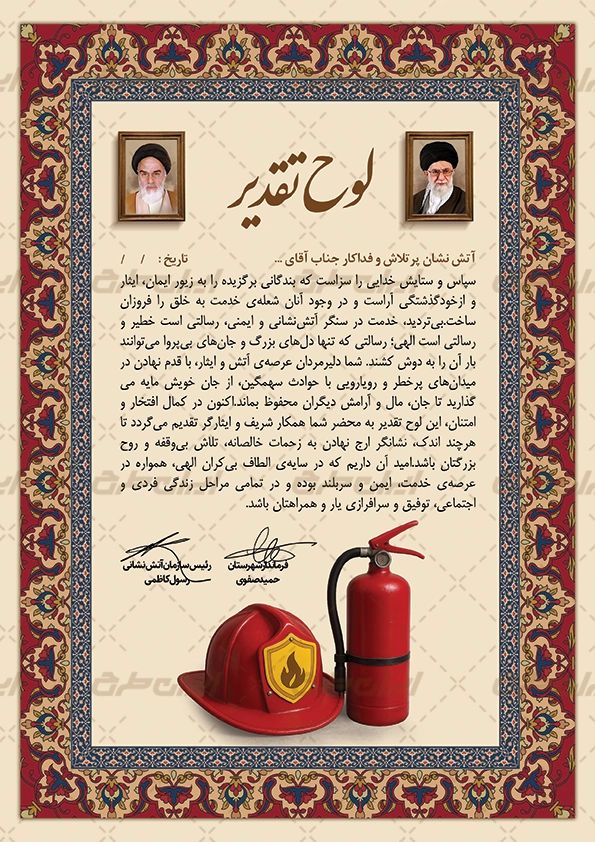 لوح تقدیر
آتش نشان پرتلاش و فداکار جناب آقای ...
تاریخ : / /
سپاس و ستایش خدایی را سزاست که بندگانی برگزیده را به زیور ایمان، ایثار
و ازخودگذشتگی آراست و در وجود آنان شعله‌ی خدمت به خلق را فروزان
ساخت.بی‌تردید، خدمت در سنگر آتش‌نشانی و ایمنی، رسالتی است خطیر و
رسالتی است الهی؛ رسالتی که تنها دل‌های بزرگ و جان‌های بی‌پروا می‌توانند
بار آن را به دوش کشند. شما دلیرمردان عرصه‌ی آتش و ایثار، با قدم نهادن در
میدان‌های پرخطر و رویارویی با حوادث سهمگین، از جان خویش مایه می
گذارید تا جان، مال و آرامش دیگران محفوظ بماند.اکنون در کمال افتخار و
امتنان، این لوح تقدیر به محضر شما همکار شریف و ایثارگر تقدیم می‌گردد تا
هرچند اندک، نشانگر ارج نهادن به زحمات خالصانه، تلاش بی‌وقفه و روح
بزرگتان باشد.امید آن داریم که در سایه‌ی الطاف بی‌کران الهی، همواره در
عرصه‌ی خدمت، ایمن و سربلند بوده و در تمامی مراحل زندگی فردی و
اجتماعی، توفیق و سرافرازی یار و همراهتان باشد.
فرماندار شهرستان
حمید صفوی
رئیس سازمان آتش نشانی
رسول کاظمی